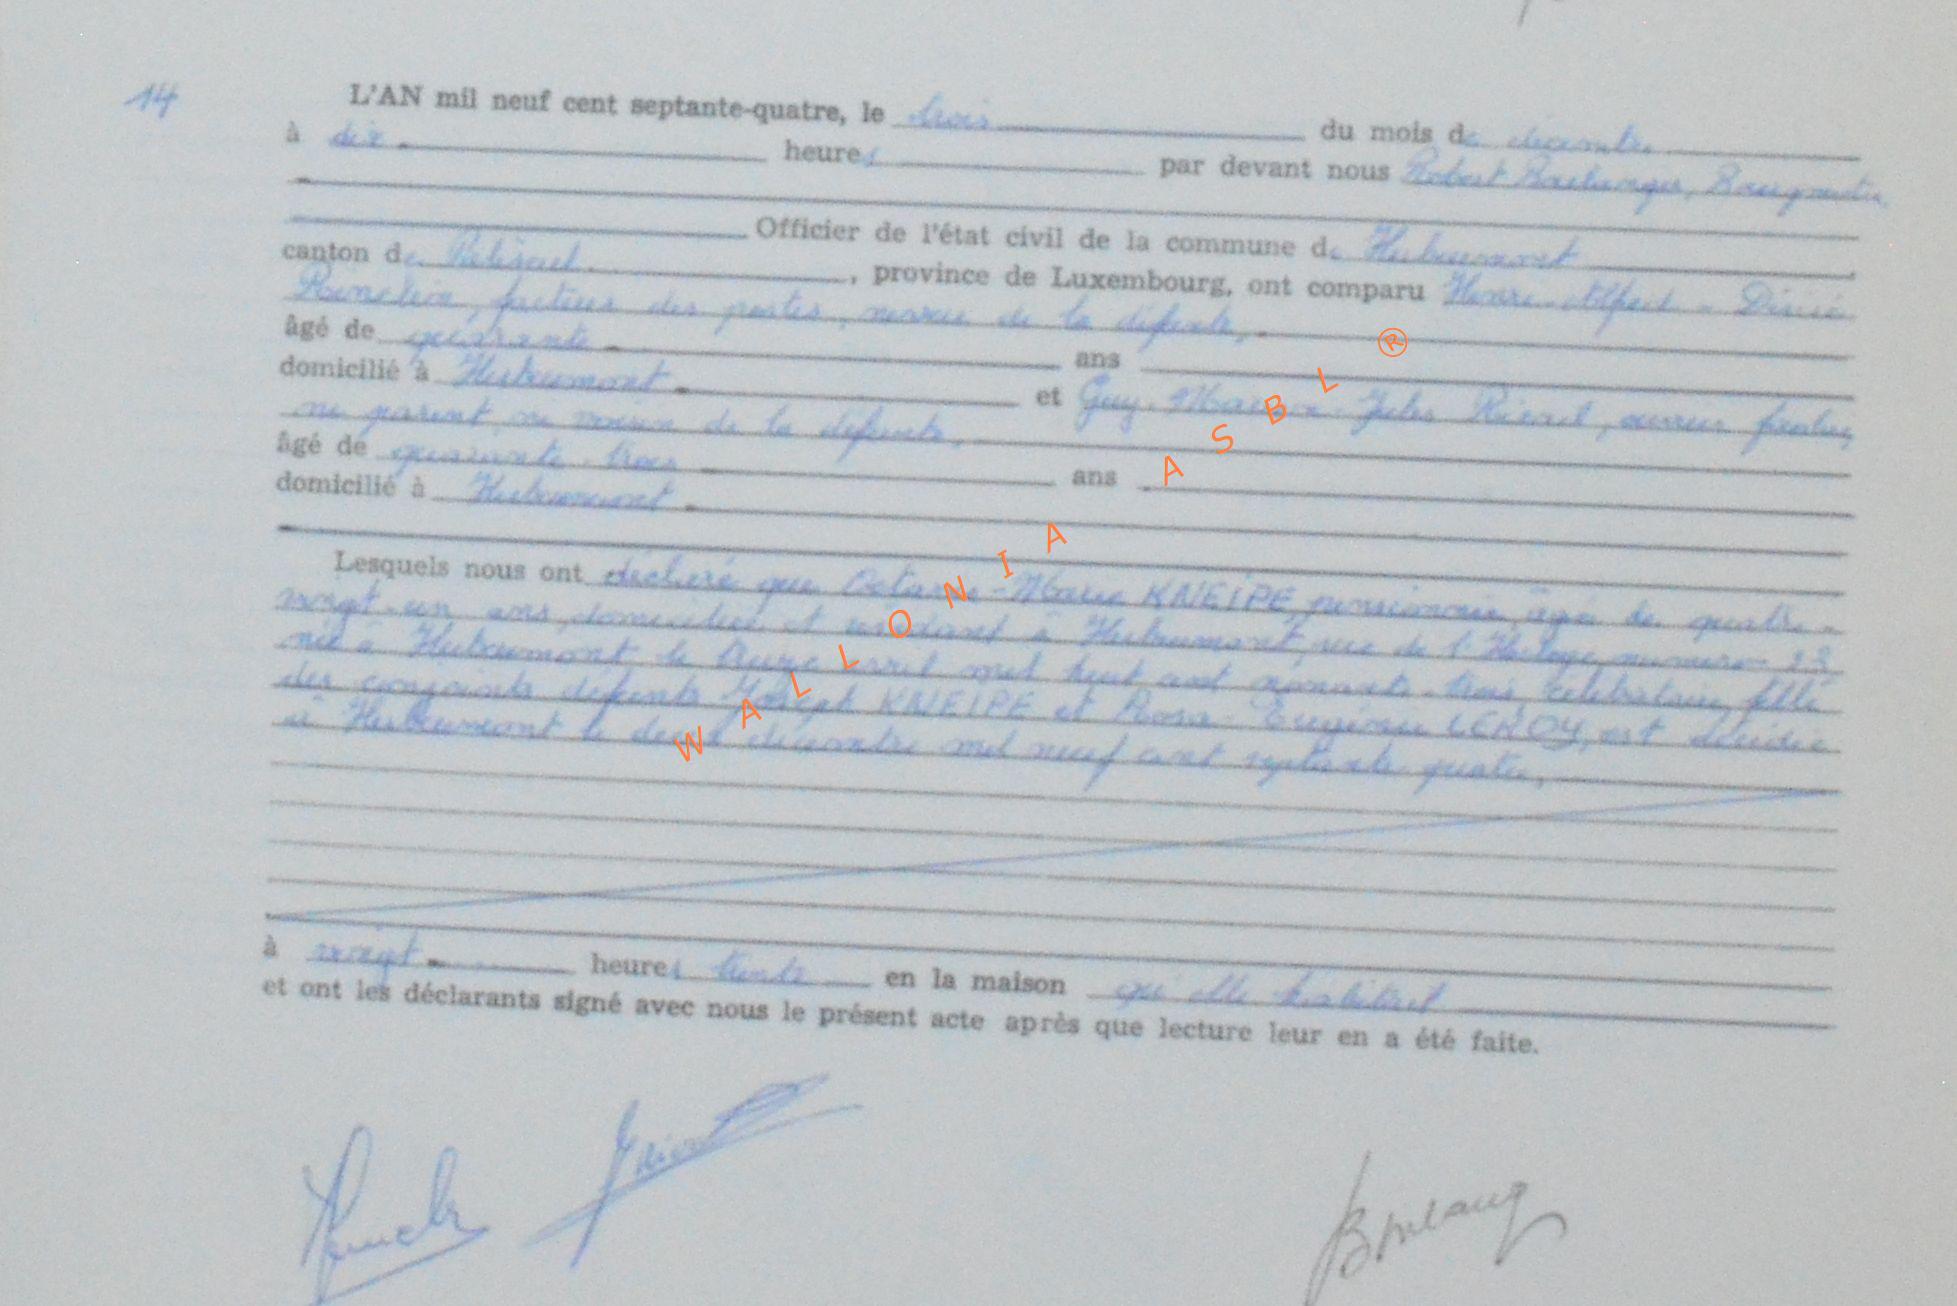 14
L'AN mil neuf cent septante-quatre, le trois du mois de décembre
à dix heures par devant nous Robert Boulanger, Bourgmestre
Officier de l'état civil de la commune de Herbeumont
canton de Paliseul, province de Luxembourg, ont comparu Henri-Alfred-Désiré
facteur des postes, neveu de la défunte,
âgé de quarante ans
domicilié à Herbeumont et Guy Jules ouvrier
ni parent ni voisin de la défunte,
âgé de quarante-trois ans
domicilié à Herbeumont
Lesquels nous ont déclaré que Octavie-Marie KNEIPE, pensionnée, âgée de quatre-
vingt-un ans, domiciliée et résidant à Herbeumont, rue de l' numéro
née à Herbeumont, le avril mil huit cent nonante-trois, célibataire, fille
des conjoints défunts Joseph KNEIPE et Rosa-Eugénie LEROY, est décédée
à Herbeumont le deux décembre mil neuf cent septante quatre,
à vingt heures trente en la maison qu'elle habitait
et ont les déclarants signé avec nous le présent acte après que lecture leur en a été faite.
Boulanger
WALLONIA ASBL ®